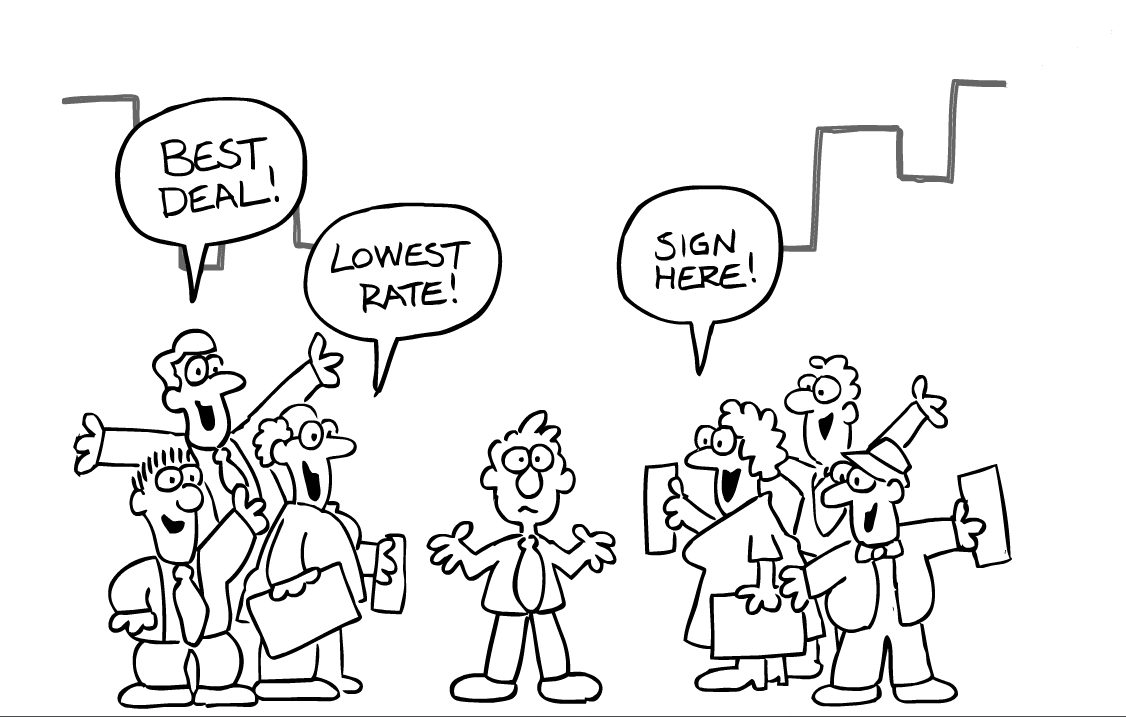 BEST
DEAL!
LOWEST
RATE!
SIGN
HERE!